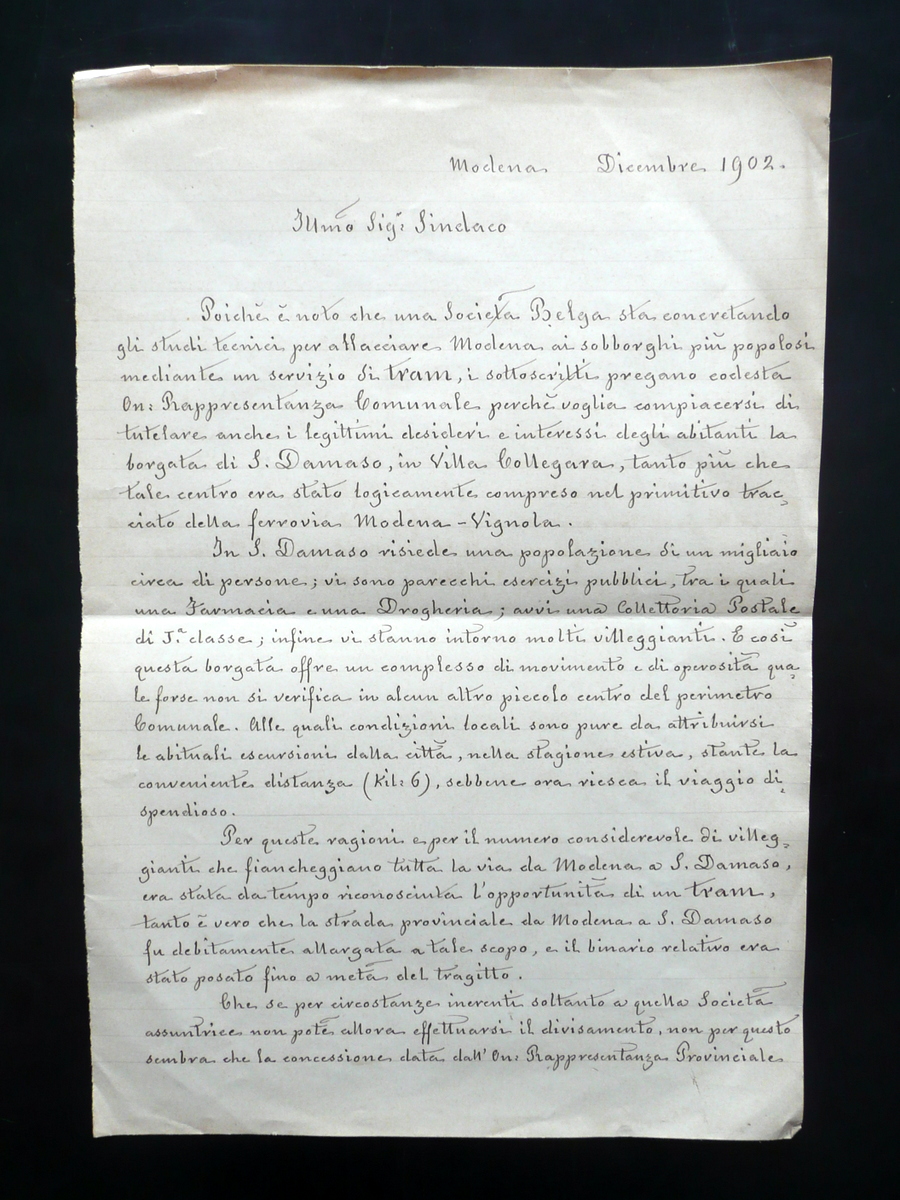 Modena Dicembre 1902.
Illmo Sigr: Sindaco
Poichè è noto che una Società Belga sta concretando
gli studi tecnici per allacciare Modena ai sobborghi più popolosi
mediante un servizio di tram, i sottoscritti pregano codesta
On: Rappresentanza Comunale perchè voglia compiacersi di
tutelare anche i legittimi desideri e interessi degli abitanti la
borgata di S. Damaso, in Villa Collegara, tanto più che
tale centro era stato logicamente compreso nel primitivo trac=
ciato della ferrovia Modena - Vignola.
In S. Damaso risiede una popolazione di un migliaio
circa di persone; vi sono parecchi esercizi pubblici, tra i quali
una Farmacia e una Drogheria; avvi una Collettoria Postale
di Iª classe; infine vi stanno intorno molti villeggianti. E così
questa borgata offre un complesso di movimento e di operosità qua=
le forse non si verifica in alcun altro piccolo centro del perimetro
Comunale. Alle quali condizioni locali sono pure da attribuirsi
le abituali escursioni dalla città, nella stagione estiva, stante la
conveniente distanza (Kil: 6), sebbene ora riesca il viaggio di=
spendioso.
Per queste ragioni e per il numero considerevole di villeg=
gianti che fiancheggiano tutta la via da Modena a S. Damaso,
era stata da tempo riconosciuta l'opportunità di un tram,
tanto è vero che la strada provinciale da Modena a S. Damaso
fu debitamente allargata a tale scopo, e il binario relativo era
stato posato fino a metà del tragitto.
Che se per circostanze inerenti soltanto a quella Società
assuntrice non potè allora effettuarsi il divisamento, non per questo
sembra che la concessione data dall'On: Rappresentanza Provinciale